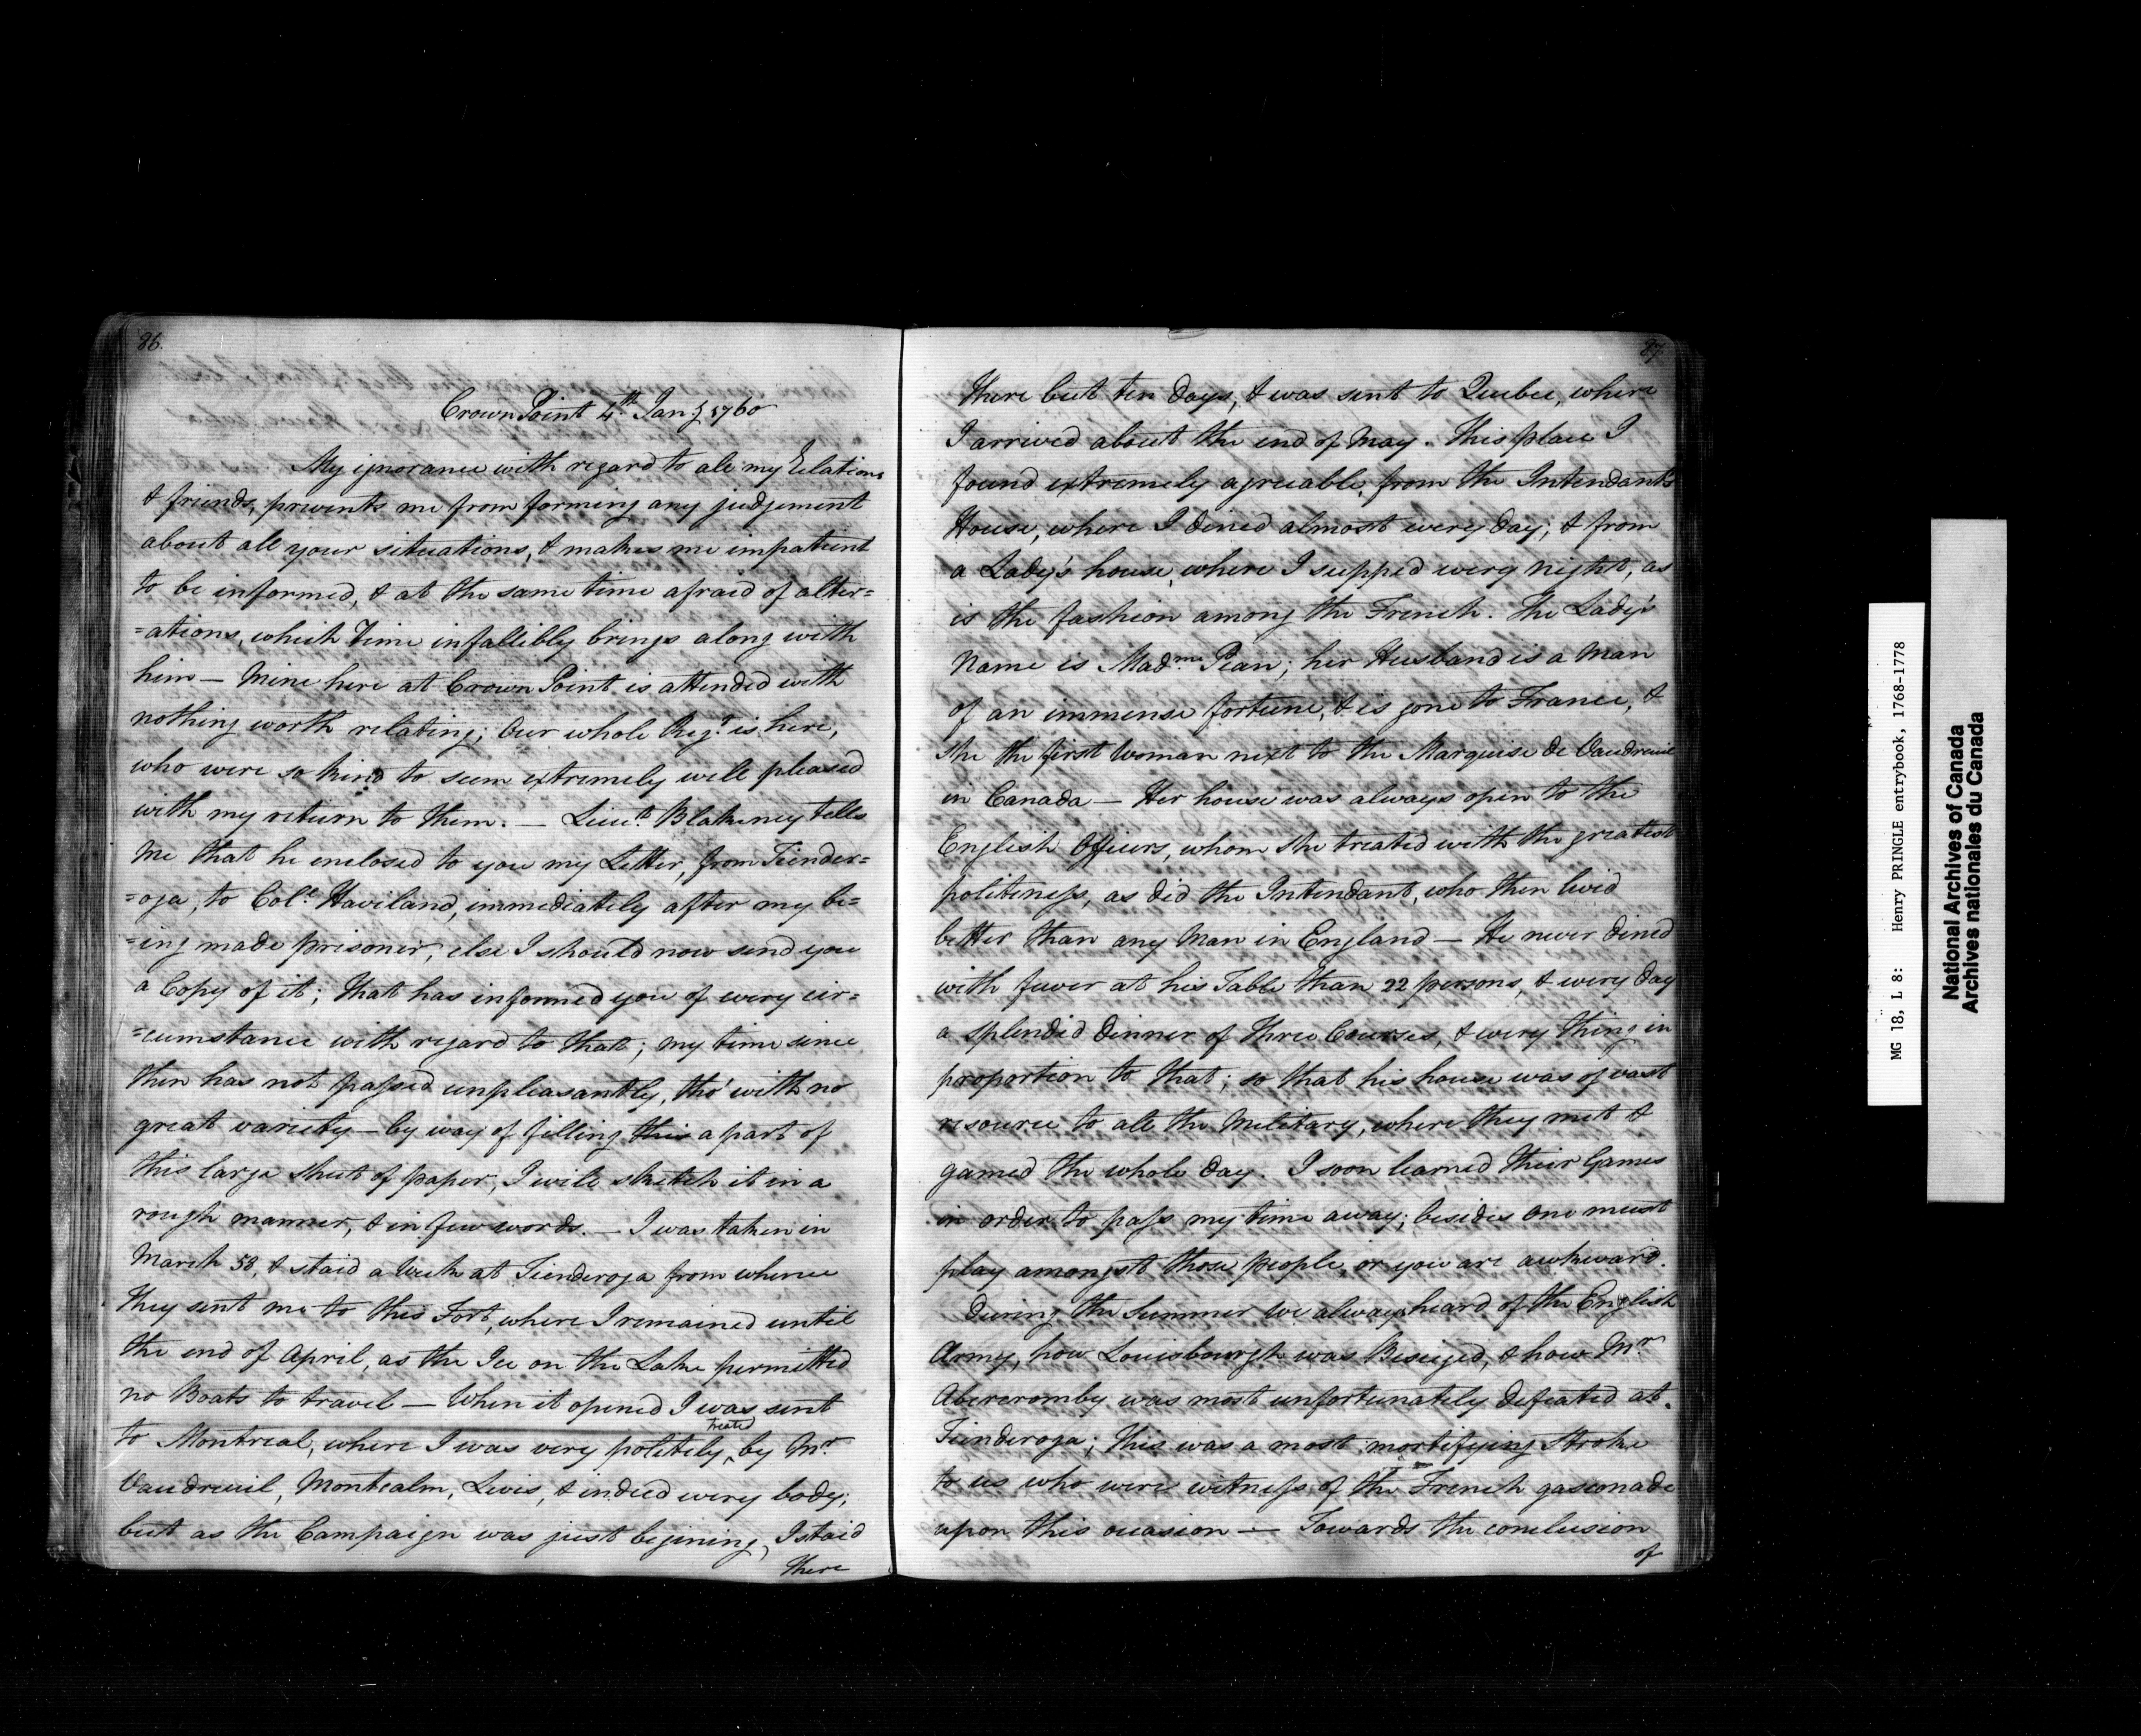 86.
Crown Point 4th Jany 1760
My ignorance with regard to all my Relations
& friends, prevents me from forming any judgement
about all your situations, & makes me impatient
to be informed, & at the same time afraid of alter=
=ations, which Time infallibly brings along with
him — Mine here at Crown Point is attended with
nothing worth relating; Our whole Regt. is here,
who were so kind to seem extremely well pleased
with my return to them. — Lieut. Blakeney tells
me that he enclosed to you my Letter, from Tiender=
=oga, to Coll. Haviland, immediately after my be=
=ing made prisoner, else I should now send you
a Copy of it; That has informed you of every cir=
=cumstance with regard to that; my time since
then has not passed unpleasantly, tho' with no
great variety — by way of filling this a part of
this large sheet of paper, I will sketch it in a
rough manner, & in few words. — I was taken in
March 58, & staid a Week at Tienderoga from whence
they sent me to this Fort, where I remained until
the end of April, as the Ice on the Lake permitted
no Boats to travel — When it opened I was sent
to Montreal, where I was very politely treated by Mr.
Vaudreuil, Montcalm, Levis, & indeed every body;
but as the Campaign was just begining, I staid
there
87.
there but ten days, & was sent to Quebec, where
I arrived about the end of May. This place I
found extremely agreeable, from the Intendant's
House, where I dined almost every day; & from
a Lady's house, where I supped every night, as
is the fashion among the French. The Lady's
Name is Madme. Pean; her Husband is a Man
of an immense fortune, & is gone to France, &
she the first Woman next to the Marquise de Vaudreuil
in Canada — Her house was always open to the
English Officers, whom she treated with the greatest
politeness, as did the Intendant, who then lived
better than any Man in England — He never dined
with fewer at his Table than 22 persons, & every day
a splendid dinner of three Courses, & every thing in
proportion to that; so that his house was of vast
resource to all the Military, where they met &
gamed the whole day. I soon learned their Games
in order to pass my time away; besides one must
play amongst those people, or you are awkward.
During the Summer We always heard of the English
Army, how Louisbourgh was Beseiged, & how Mr.
Abercromby was most unfortunately defeated at
Tienderoga; this was a most mortifying Stroke
to us who were witness of the French gasconade
upon this occasion — Towards the conclusion
of
MG 18, L 8: Henry PRINGLE entrybook, 1768-1778
National Archives of Canada
Archives nationales du Canada